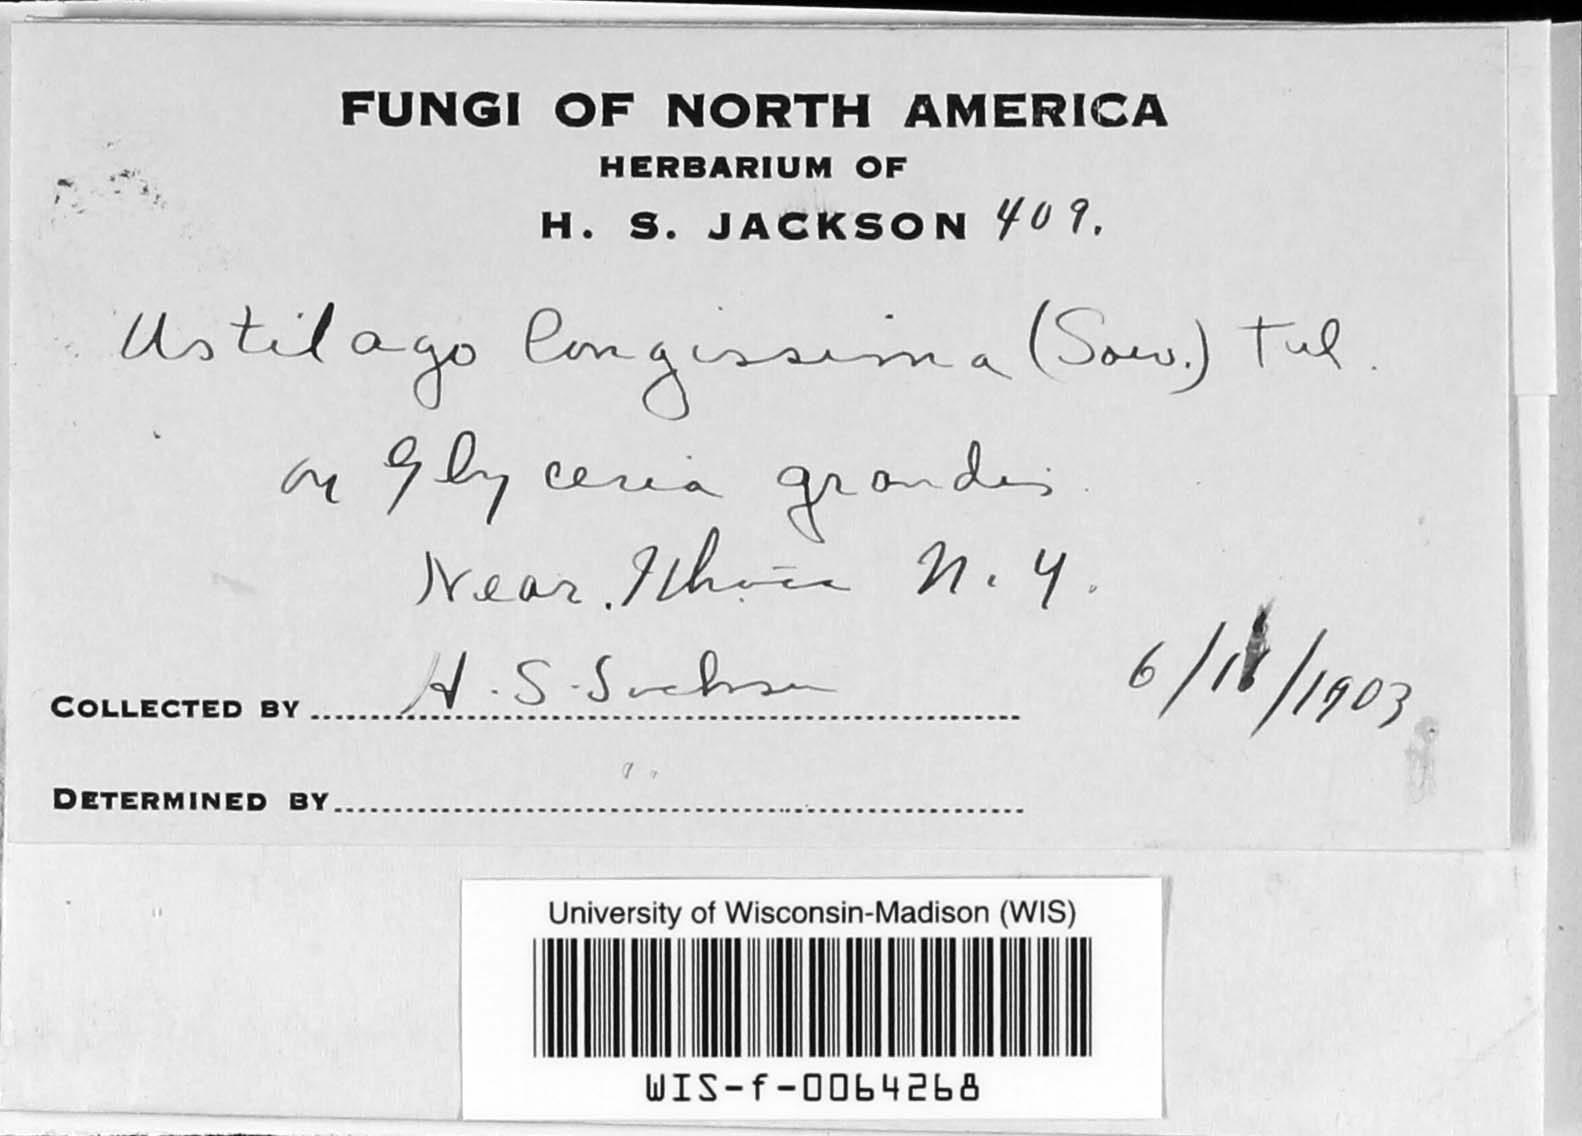 FUNGI OF NORTH AMERICA
HERBARIUM OF
H. S. JACKSON 409.
Ustilago longissima (Sow.) Tul.
on Glyceria grandis.
Near Ithaca N. Y.
COLLECTED BY H. S. Jackson 6/ /1903
DETERMINED BY
University of Wisconsin-Madison (WIS)
WIS-f-0064268